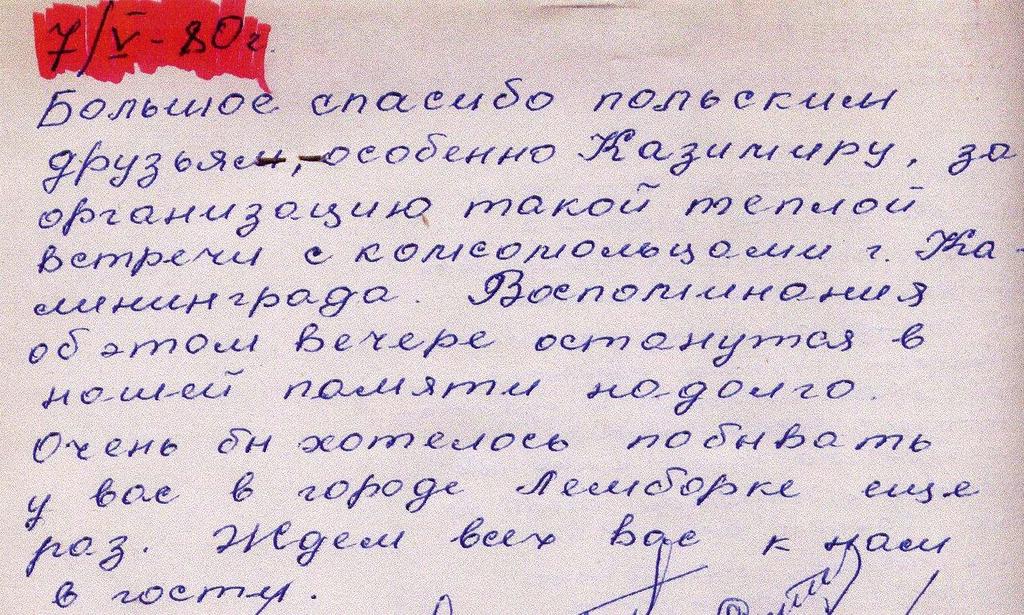 7/V-80г.
Большое спасибо польским
друзьям, особенно Казимиру, за
организацию такой теплой
встречи с комсомольцами г. Ка-
лининграда. Воспоминания
об этом вечере останутся в
нашей памяти надолго.
Очень бы хотелось побывать
у вас в городе Лемборке еще
раз. Ждем всех вас к нам
в гости.